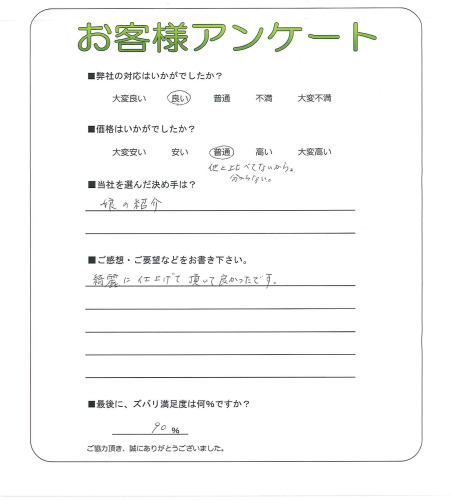 お客様アンケート
■弊社の対応はいかがでしたか？
大変良い 良い 普通 不満 大変不満
■価格はいかがでしたか？
大変安い 安い 普通 高い 大変高い
他と比べてないから。
分からない。
■当社を選んだ決め手は？
娘の紹介
■ご感想・ご要望などをお書き下さい。
綺麗に仕上げて頂いて良かったです。
■最後に、ズバリ満足度は何%ですか？
90 %
ご協力頂き、誠にありがとうございました。